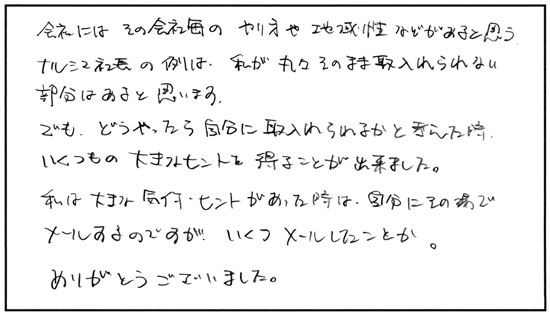 会社には その会社毎の やり方や 地域性 などがあると思う.
ナルシマ社長 の 例は、私が 丸々 そのまま 取入れられない
部分はあると 思います.
でも、どうやったら 自分に 取入れられるかと 考えた時.
いくつもの 大きなヒントを 得ることが 出来ました。
私は 大きな 気付・ヒントがあった時は、自分にその場で
メールするのですが いくつ メールしたことか。
ありがとうございました。